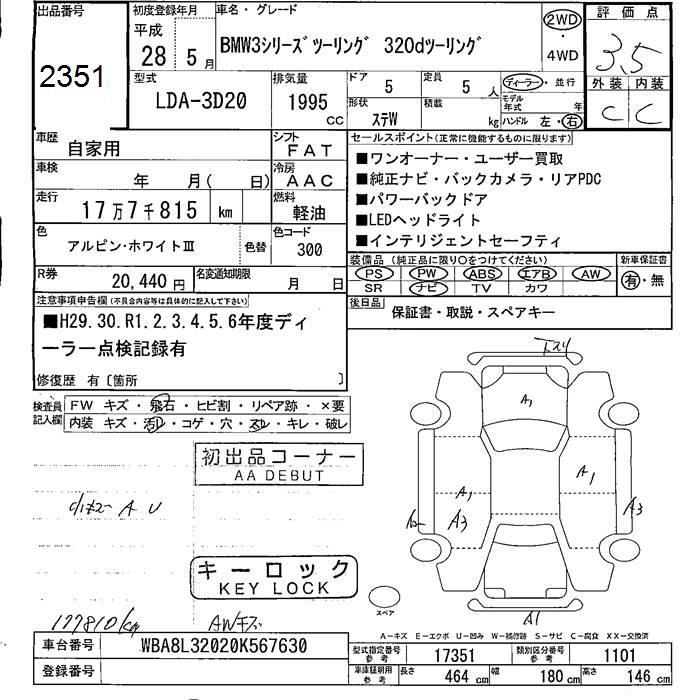 出品番号
2351
初度登録年月
平成
28 5月
車名・グレード
BMW3シリーズツーリング 320dツーリング
2WD
・
4WD
評価点
3.5
外装 内装
C C
型式
LDA-3D20
排気量
1995
CC
ドア
5
定員
5 人
ディーラー・並行
モデル年式 年
形状
ステW
積載
kg
ハンドル 左・右
車歴
自家用
シフト
FAT
車検
年 月( 日)
冷房
AAC
走行
17万7千815 km
燃料
軽油
色
アルピン・ホワイトⅢ
色替
色コード
300
R券
20,440円
名変通知期限
月 日
セールスポイント(正常に機能するものに限ります)
■ワンオーナー・ユーザー買取
■純正ナビ・バックカメラ・リアPDC
■パワーバックドア
■LEDヘッドライト
■インテリジェントセーフティ
装備品 (純正品に限り○をつけてください)
PS PW ABS エアB AW
SR ナビ TV カワ
新車保証書
有・無
後日品
保証書・取説・スペアキー
注意事項申告欄(不具合内容等は具体的に記入して下さい)
■H29.30.R1.2.3.4.5.6年度ディ
ーラー点検記録有
修復歴 有〔箇所 〕
検査員記入欄
FW キズ・飛石・ヒビ割・リペア跡・×要
内装 キズ・汚レ・コゲ・穴・スレ・キレ・破レ
初出品コーナー
AA DEBUT
A U
キーロック
KEY LOCK
177810km
AWキズ
下スリ
A1
A1
A1
A3
A3
A1
スペア
A−キズ E−エクボ U−凹み W−補修跡 S−サビ C−腐食 XX−交換済
車台番号
WBA8L32020K567630
登録番号
型式指定番号
参考
17351
類別区分番号
参考
1101
車庫証明用
参考
長さ 464 cm 幅 180 cm 高さ 146 cm